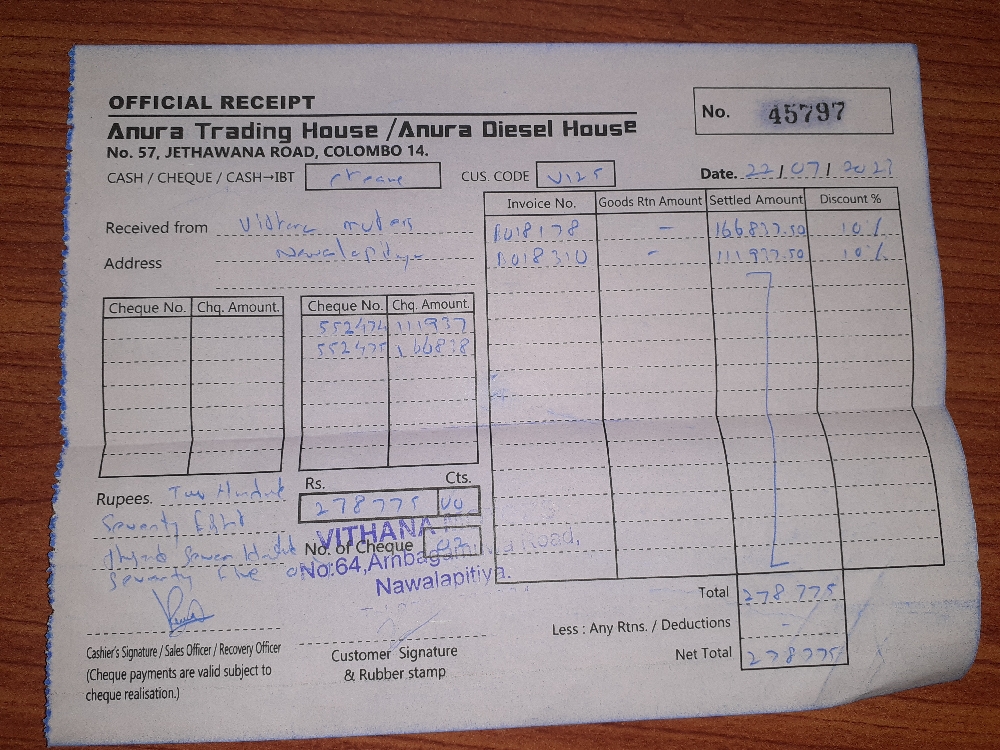 OFFICIAL RECEIPT
Anura Trading House /Anura Diesel House
No. 57, JETHAWANA ROAD, COLOMBO 14.
No. 45797
CASH / CHEQUE / CASH→IBT
CUS. CODE V125
Date. 22/07/2023
Received from Vithana motors
Address Nawalapitiya
Invoice No. Goods Rtn Amount Settled Amount Discount %
B018178 - 166,837.50 10%
B018310 - 111,937.50 10%
Cheque No. Chq. Amount. Cheque No. Chq. Amount.
552474 111937
552475 166838
Rupees. Two Hundred
Seventy Eight
Seven
Seventy Five
Rs. Cts.
278775 00
No. of Cheque 02
VITHANA
No:64, Road,
Nawalapitiya.
Total 278 775
Less : Any Rtns. / Deductions -
Net Total 278775
Cashier's Signature / Sales Officer / Recovery Officer
(Cheque payments are valid subject to
cheque realisation.)
Customer Signature
& Rubber stamp